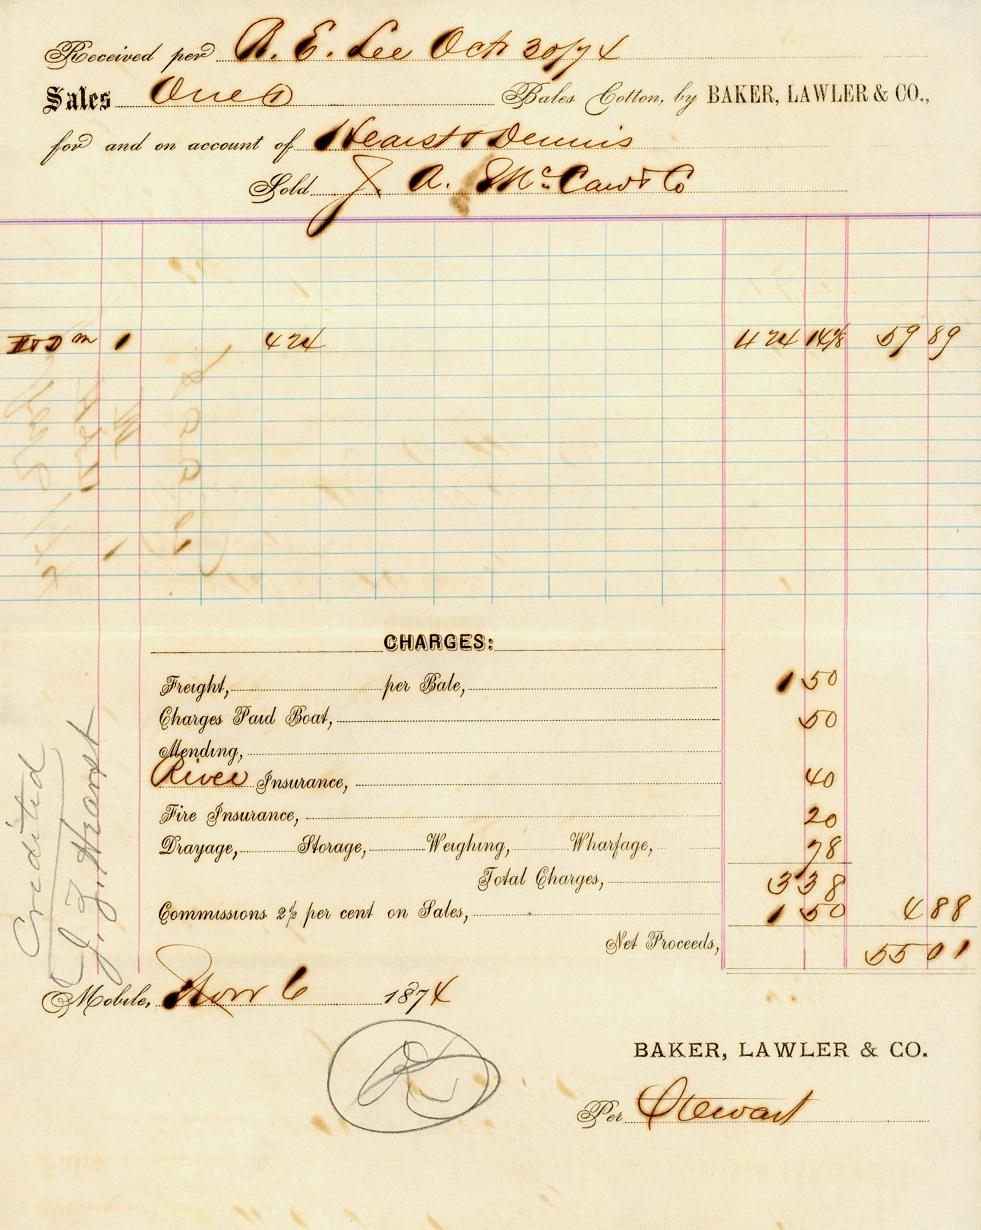 Received per R. E. Lee Oct 30/74
Sales One Bales Cotton, by BAKER, LAWLER & CO.,
for and on account of Hearst & Dennis
Sold J. A. McCaw & Co
H & D m 1 424 424 14 1/8 59 89
CHARGES:
Freight, per Bale, 1 50
Charges Paid Boat, 50
Mending,
River Insurance, 40
Fire Insurance, 20
Drayage, Storage, Weighing, Wharfage, 78
Total Charges, 3 38
Commissions 2½ per cent on Sales, 1 50 4 88
Net Proceeds, 55 01
Mobile, Nov 6 1874
BAKER, LAWLER & CO.
Per Stewart
Credited
J. Z. Hearst